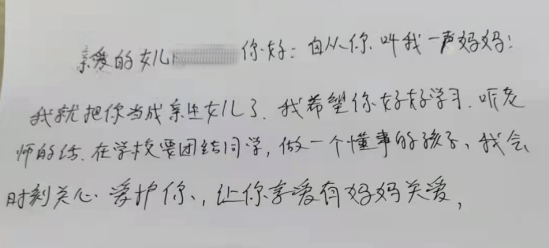 亲爱的女儿 你好：自从你叫我一声妈妈！
我就把你当成亲生女儿了、我希望你好好学习、听老
师的话、在学校要团结同学，做一个懂事的孩子、我会
时刻关心、爱护你、，让你亲爱有妈妈关爱，